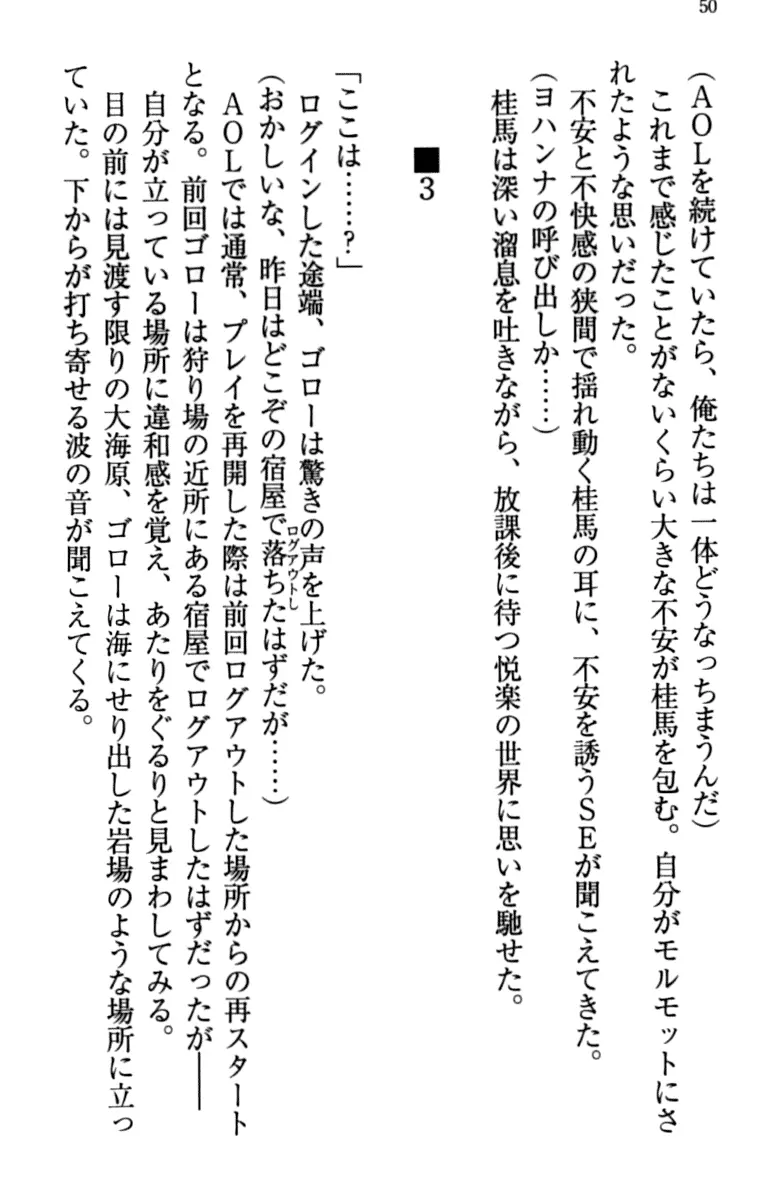 50
（ＡＯＬを続けていたら、俺たちは一体どうなっちまうんだ）
これまで感じたことがないくらい大きな不安が桂馬を包む。自分がモルモットにさ
れたような思いだった。
不安と不快感の狭間で揺れ動く桂馬の耳に、不安を誘うＳＥが聞こえてきた。
（ヨハンナの呼び出しか……）
桂馬は深い溜息を吐きながら、放課後に待つ悦楽の世界に思いを馳せた。
■3
「ここは……？」
ログインした途端、ゴローは驚きの声を上げた。
（おかしいな、昨日はどこぞの宿屋で落ちたはずだが……）
ログアウトし
ＡＯＬでは通常、プレイを再開した際は前回ログアウトした場所からの再スタート
となる。前回ゴローは狩り場の近所にある宿屋でログアウトしたはずだったが――
自分が立っている場所に違和感を覚え、あたりをぐるりと見まわしてみる。
目の前には見渡す限りの大海原、ゴローは海にせり出した岩場のような場所に立っ
ていた。下からが打ち寄せる波の音が聞こえてくる。